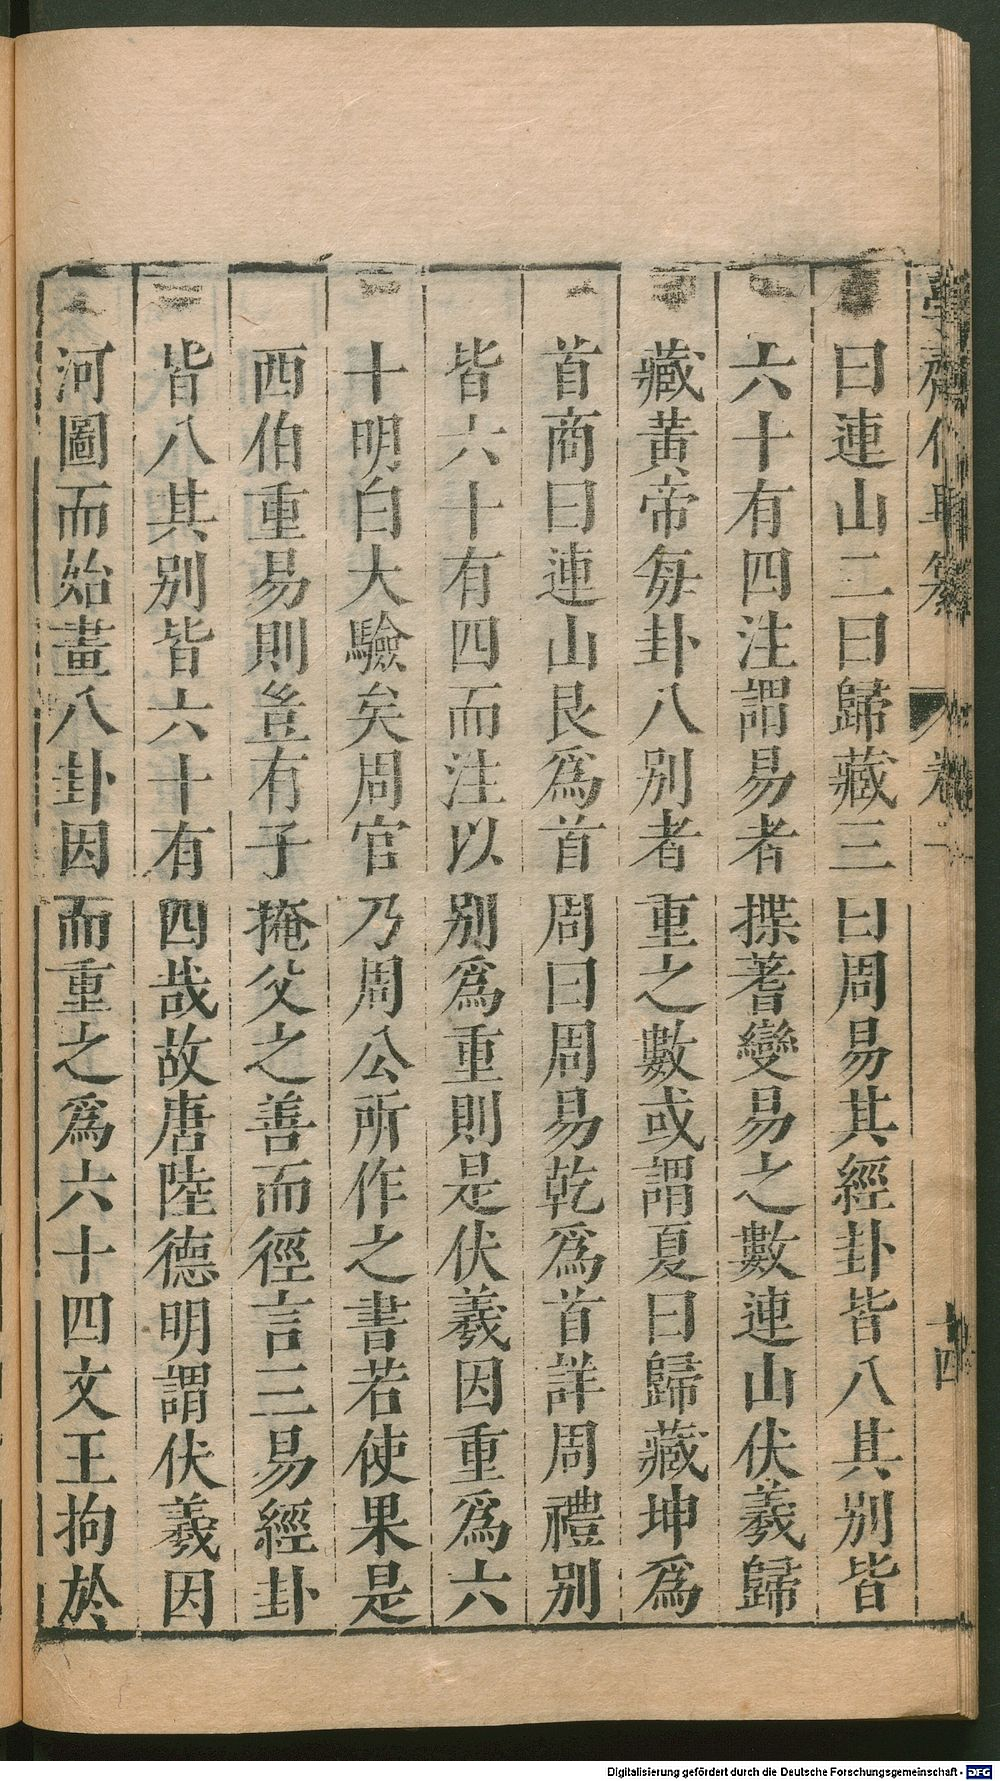 曰連山二曰歸藏三曰周易其經卦皆八其別皆
六十有四注謂易者揲蓍變易之數連山伏羲歸
藏黃帝每卦八別者重之數或謂夏曰歸藏坤爲
首商曰連山艮爲首周曰周易乾爲首詳周禮別
皆六十有四而注以別爲重則是伏羲因重爲六
十明白大驗矣周官乃周公所作之書若使果是
西伯重易則豈有子掩父之善而徑言三易經卦
皆八其別皆六十有四哉故唐陸德明謂伏羲因
河圖而始畫八卦因而重之爲六十四文王拘於
卷一
十四
Digitalisierung gefördert durch die Deutsche Forschungsgemeinschaft - DFG